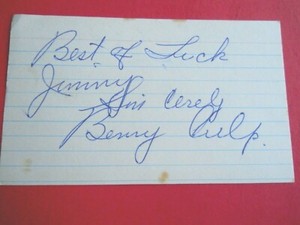 Best of Luck
Jimmy
Sincerely
Benny Culp.